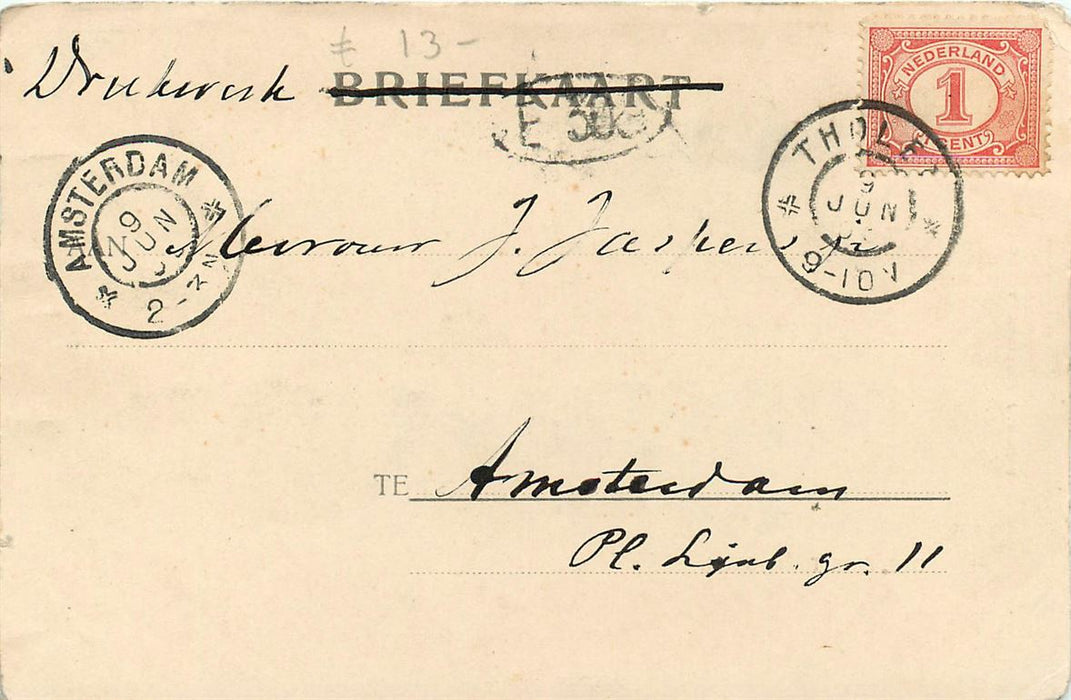 € 13-
Drukwerk BRIEFKAART
NEDERLAND
1
1 CENT
THOLEN
9
JUN
9-10V
AMSTERDAM
9
JUN
2-3N
AAN Mevrouw J. Jaspers
TE Amsterdam
Pl. Lijnb. gr. 11